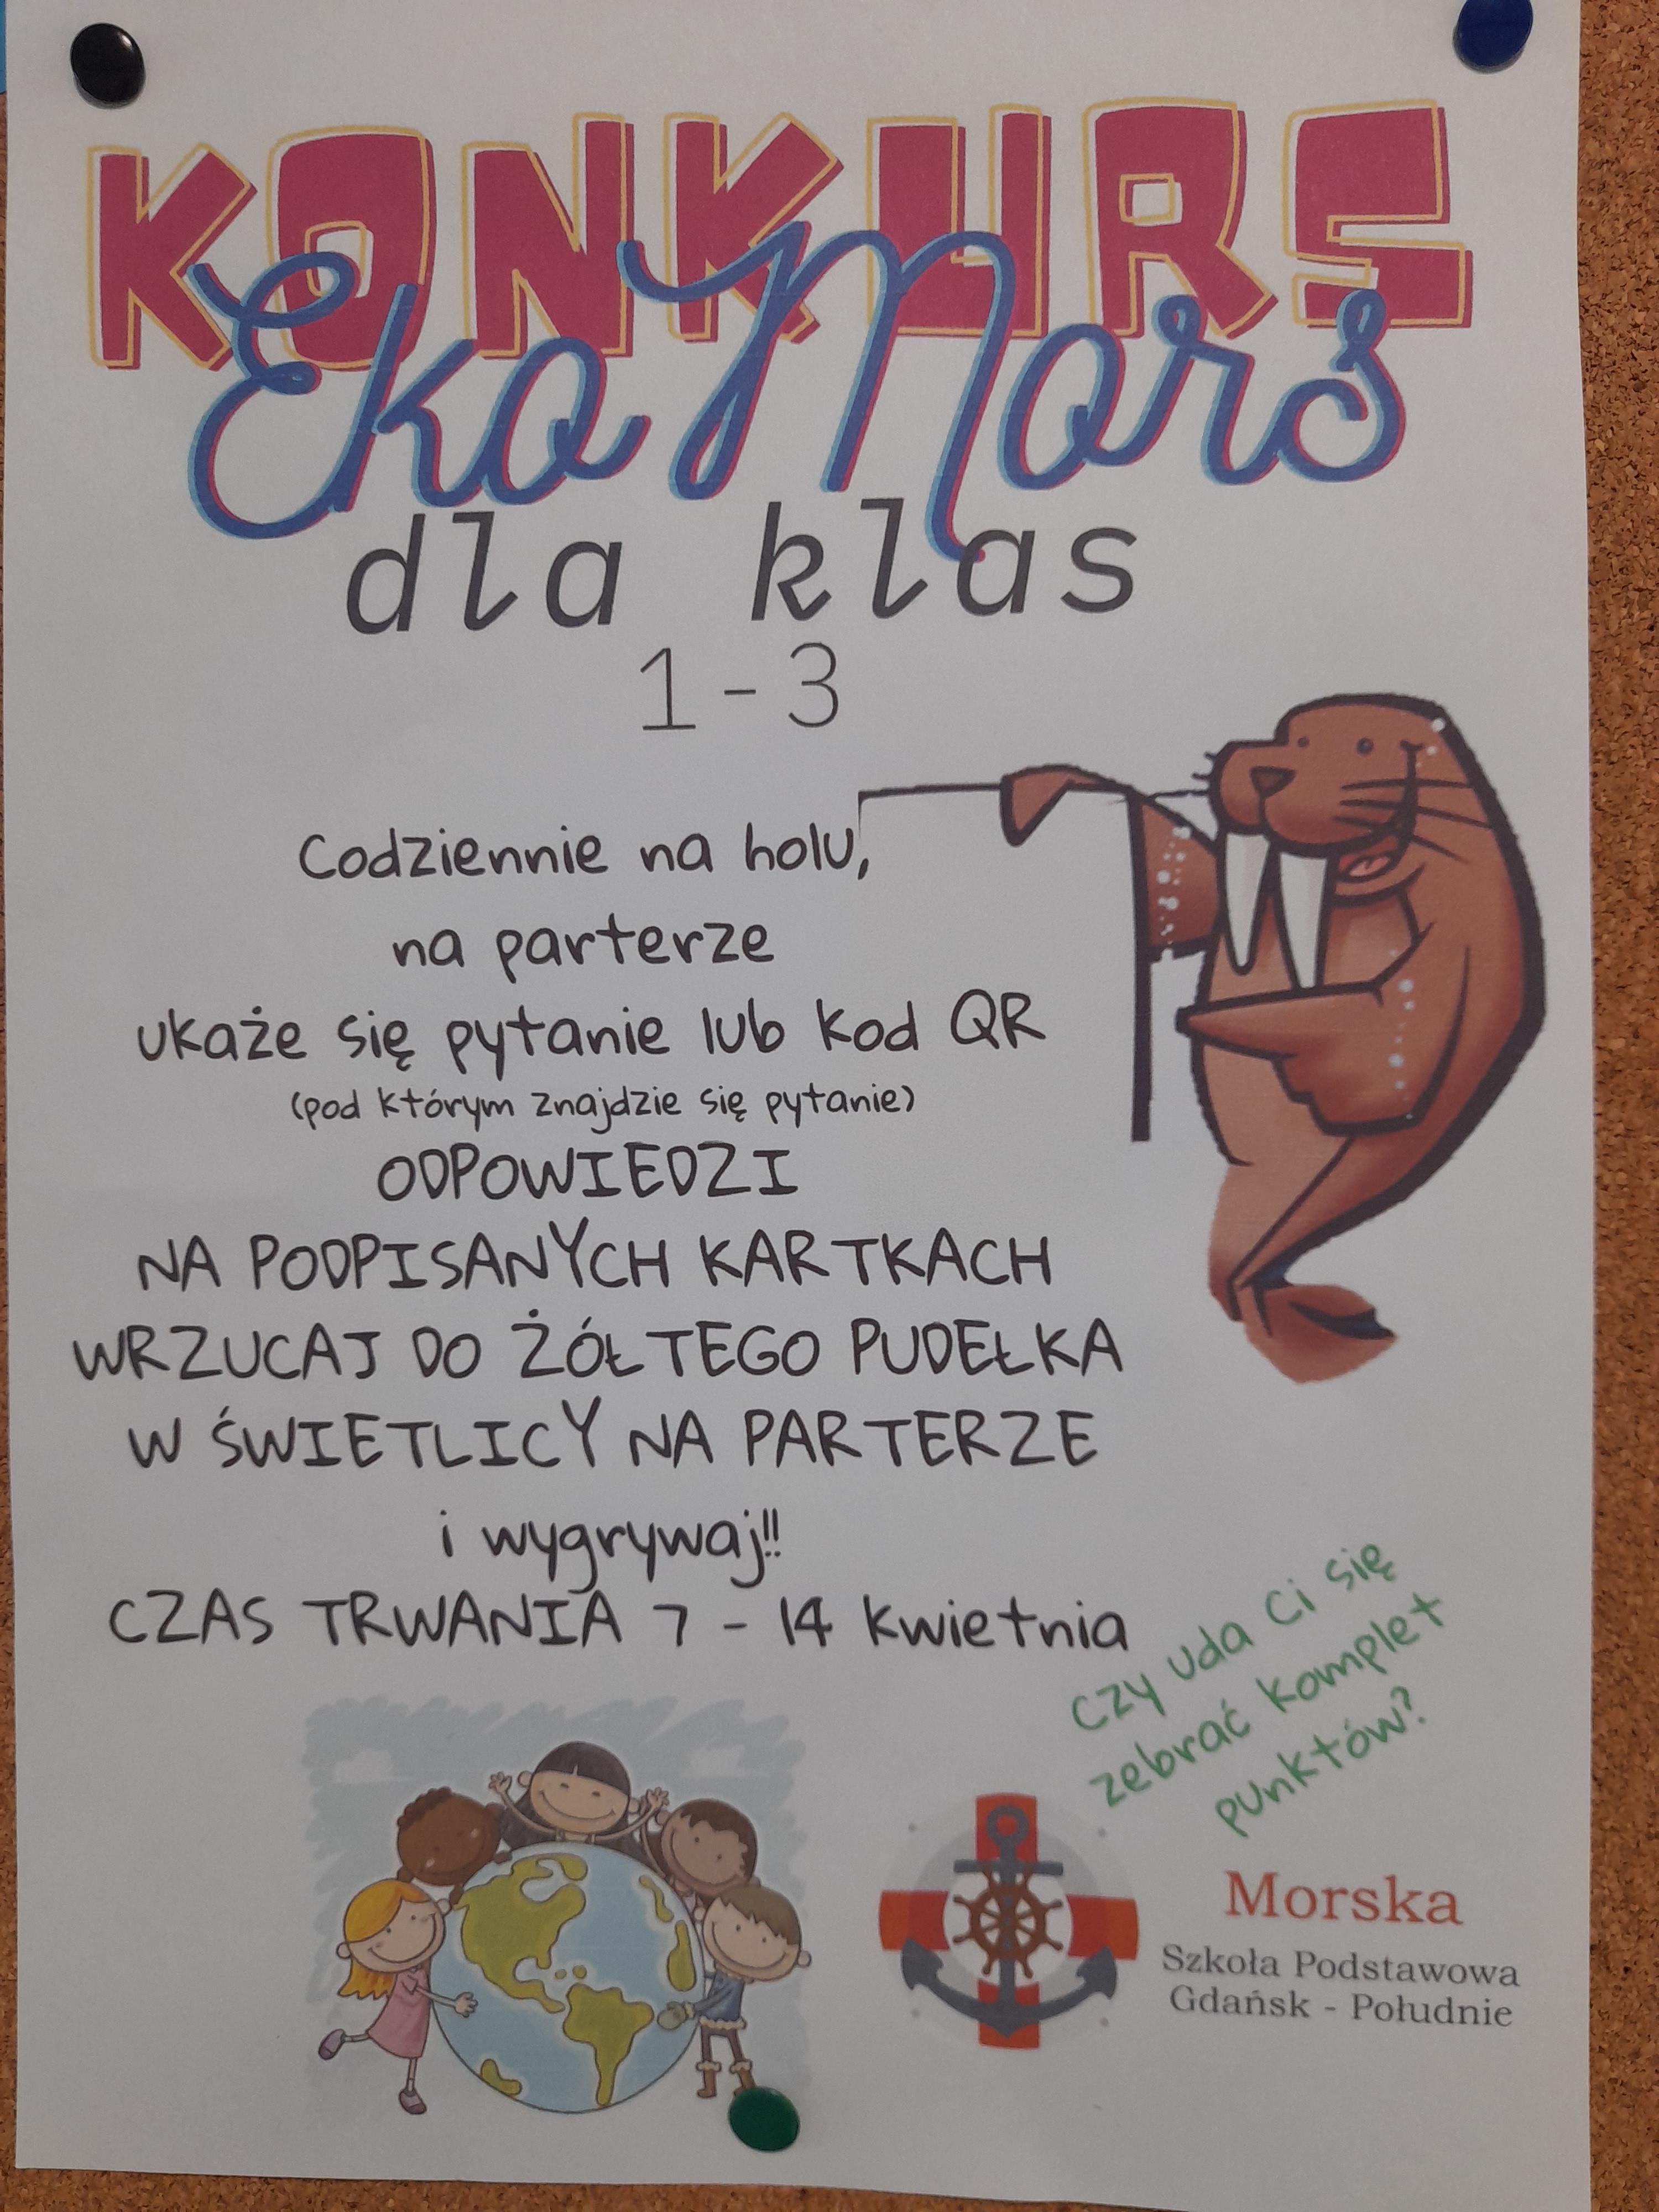 KONKURS
EkoMorś
dla klas
1-3
Codziennie na holu,
na parterze
ukaże się pytanie lub kod QR
(pod którym znajdzie się pytanie)
ODPOWIEDZI
NA PODPISANYCH KARTKACH
WRZUCAJ DO ŻÓŁTEGO PUDEŁKA
W ŚWIETLICY NA PARTERZE
i wygrywaj!!
CZAS TRWANIA 7 - 14 kwietnia
Czy uda Ci się
zebrać komplet
punktów?
Morska
Szkoła Podstawowa
Gdańsk - Południe